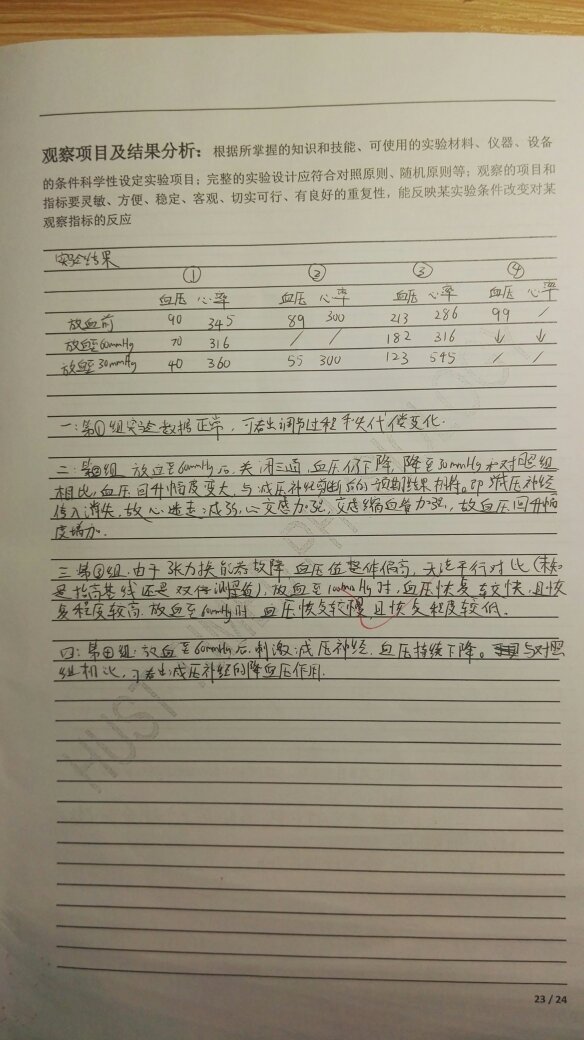 观察项目及结果分析：根据所掌握的知识和技能、可使用的实验材料、仪器、设备
的条件科学性设定实验项目；完整的实验设计应符合对照原则、随机原则等；观察的项目和
指标要灵敏、方便、稳定、客观、切实可行、有良好的重复性，能反映某实验条件改变对某
观察指标的反应
实验结果
① ② ③ ④
血压 心率 血压 心率 血压 心率 血压 心率
放血前 90 345 89 300 213 286 99 /
放血至60mmHg 70 316 / / 182 316 ↓ ↓
放血至30mmHg 40 360 55 300 123 545 / /
一：第①组实验数据正常，可看出调节过程和失代偿变化.
二：第②组 放血至60mmHg后，关闭三通，血压仍下降，降至30mmHg和对照组
相比，血压回升幅度变大，与减压神经剪断后的预期结果相符。即减压神经
传入消失，故心迷走减弱，心交感加强，交感缩血管加强，故血压回升幅
度增加.
三 第③组：由于张力换能器故障，血压值整体偏高，无法平行对比（未知
是抬高基线还是双倍测量值），放血至100mmHg时，血压恢复较快，且恢
复程度较高. 放血至60mmHg时，血压恢复较慢，且恢复程度较低.
四：第④组：放血至60mmHg后，刺激减压神经，血压持续下降。与对照
组相比，可看出减压神经的降血压作用.
23 / 24